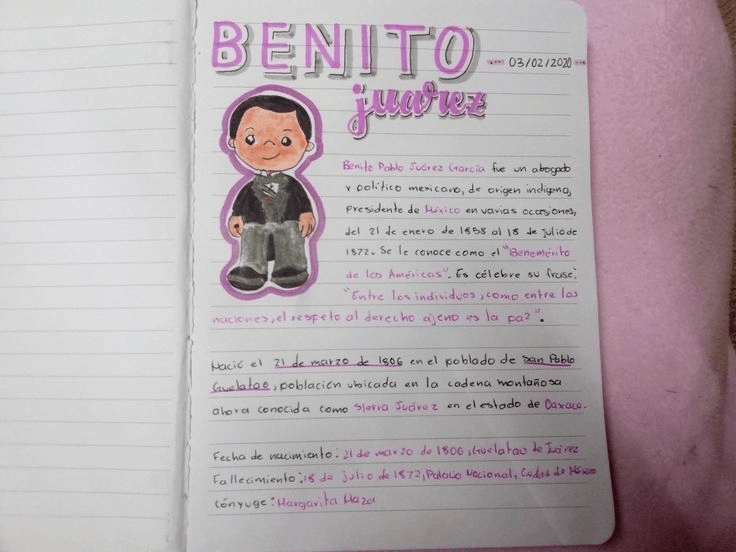 BENITO
03/02/2020
juarez
Benito Pablo Juárez García fue un abogado
y político mexicano, de origen indígena,
presidente de México en varias ocasiones,
del 21 de enero de 1858 al 18 de julio de
1872. Se le conoce como el "Benemérito
de las Américas". Es célebre su frase:
"Entre los individuos, como entre las
naciones, el respeto al derecho ajeno es la paz".
Nació el 21 de marzo de 1806 en el poblado de San Pablo
Guelatao, población ubicada en la cadena montañosa
ahora conocida como Sierra Juárez en el estado de Oaxaca.
Fecha de nacimiento: 21 de marzo de 1806, Guelatao de Juárez
Fallecimiento: 18 de julio de 1872, Palacio Nacional, Ciudad de México
Cónyuge: Margarita Maza